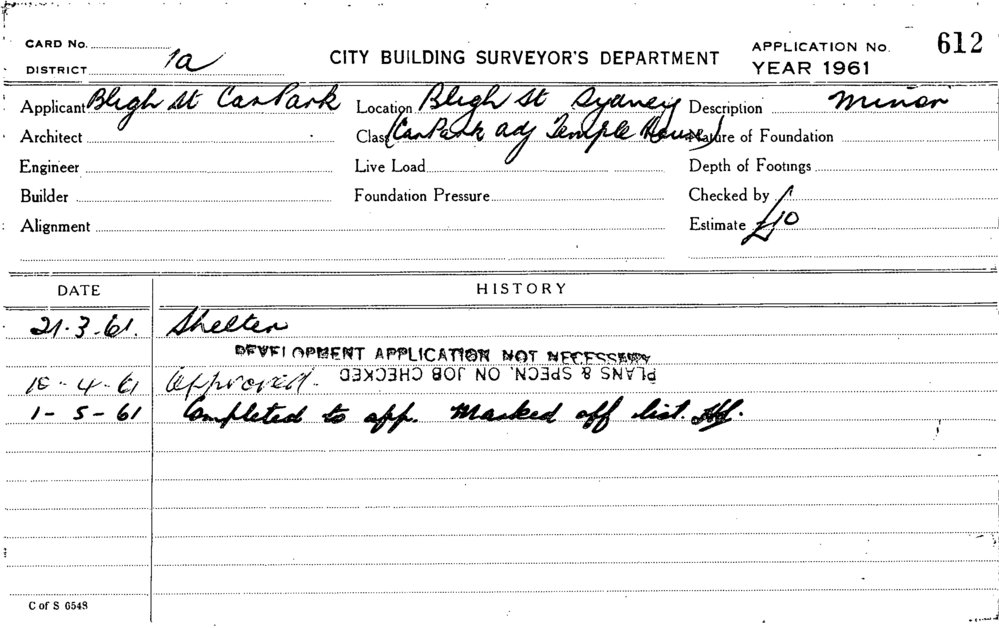 CARD No.
DISTRICT 1a
CITY BUILDING SURVEYOR'S DEPARTMENT
APPLICATION No. 612
YEAR 1961
Applicant Bligh St Car Park Location Bligh St Sydney Description Minor
Architect Class (Car Park adj Temple House) Nature of Foundation
Engineer Live Load Depth of Footings
Builder Foundation Pressure Checked by
Alignment Estimate £10
DATE HISTORY
21.3.61. Shelter
DEVELOPMENT APPLICATION NOT NECESSARY
PLANS & SPECN. ON JOB CHECKED
18-4-61 Approved.
1-5-61 Completed to app. Marked off list.
C of S 6548